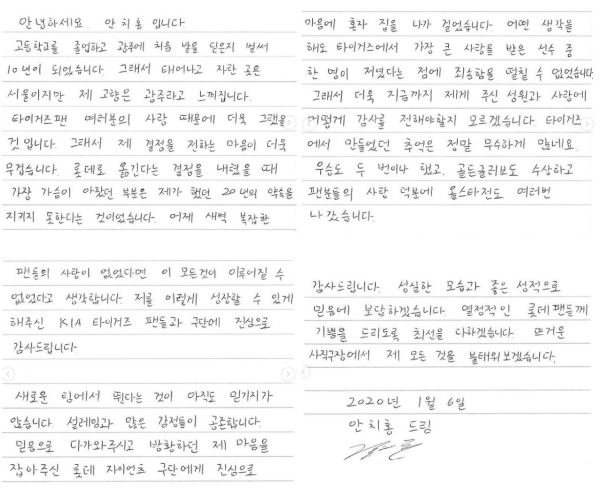 안녕하세요 안치홍 입니다
고등학교를 졸업하고 광주에 처음 발을 딛은지 벌써
10년이 되었습니다. 그래서 태어나고 자란 곳은
서울이지만 제 고향은 광주라고 느껴집니다.
타이거즈팬 여러분의 사랑 때문에 더욱 그랬을
것 입니다. 그래서 제 결정을 전하는 마음이 더욱
무겁습니다. 롯데로 옮긴다는 결정을 내렸을 때
가장 가슴이 아팠던 부분은 제가 했던 20년의 약속을
지키지 못한다는 것이었습니다. 어제 새벽 복잡한
마음에 혼자 집을 나가 걸었습니다. 어떤 생각을
해도 타이거즈에서 가장 큰 사랑을 받은 선수 중
한 명이 저였다는 점에 죄송함을 떨칠 수 없었습니다.
그래서 더욱 지금까지 제게 주신 성원과 사랑에
어떻게 감사를 전해야할지 모르겠습니다. 타이거즈
에서 만들었던 추억은 정말 무수하게 많네요.
우승도 두 번이나 했고, 골든글러브도 수상하고
팬분들의 사랑 덕분에 올스타전도 여러번
나갔습니다.
팬들의 사랑이 없었다면 이 모든것이 이루어질 수
없었다고 생각합니다. 저를 이렇게 성장할 수 있게
해주신 KIA 타이거즈 팬들과 구단에 진심으로
감사드립니다.
새로운 팀에서 뛴다는 것이 아직도 믿기지가
않습니다. 설레임과 많은 감정들이 공존합니다.
믿음으로 다가와주시고 방황하던 제 마음을
잡아주신 롯데 자이언츠 구단에게 진심으로
감사드립니다. 성실한 모습과 좋은 성적으로
믿음에 보답하겠습니다. 열정적인 롯데팬들께
기쁨을 드리도록 최선을 다하겠습니다. 뜨거운
사직구장에서 제 모든 것을 불태워보겠습니다.
2020년 1월 6일
안치홍 드림